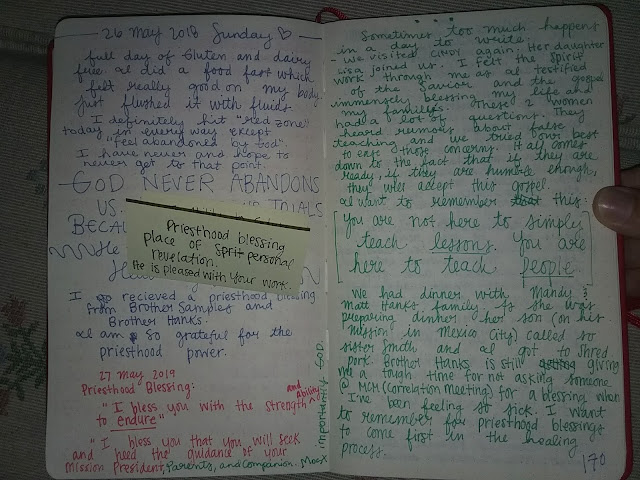 26 May 2018 Sunday ♡
full day of Gluten and dairy
free. I did a food fast which
felt really good on my body.
Just flushed it with fluids.
I definitely hit "red zone"
today in every way except
"feel abandoned by God".
I have never and hope to
never get to that point.
GOD NEVER ABANDONS
US. TRIALS
BECAU
He
Priesthood blessing
place of Sprit personal
revelation.
He is pleased with your work.
I recieved a priesthood blessing
from Brother Samples and
Brother Hanks.
I am so grateful for the
priesthood power.
27 May 2019
Priesthood Blessing:
"I bless you with the strength and Ability
to endure"
"I bless you that you will seek
and heed the guidance of your
mission President, Parents, and companion.
importantly God.
Sometimes too much happens
in a day to write.
- We visited CINDY again. Her daughter
Lisa joined us. I felt the Spirit
work through me as I testified
of the Savior and the gospel
immensely blessing my life and
my families. These 2 women
had a lot of questions. They
heard rumors about false
teaching and we tried our best
to those concerns. It all comes
down to the fact that if they are
ready, if they are humble enough,
they will accept this gospel.
I want to remember this:
[you are not here to simply
teach lessons. You are
here to teach people.]
We had dinner with Mandy &
Matt Hanks family. As she was
preparing dinner, her son (on his
mission in Mexico City) called so
sister Smith and I got to shred
pork. Brother Hanks is still giving
me a tough time for not asking someone
@ MCM (Correlation meeting) for a blessing when
I've been feeling so sick. I want
to remember for priesthood blessings
to come first in the healing
process.
170